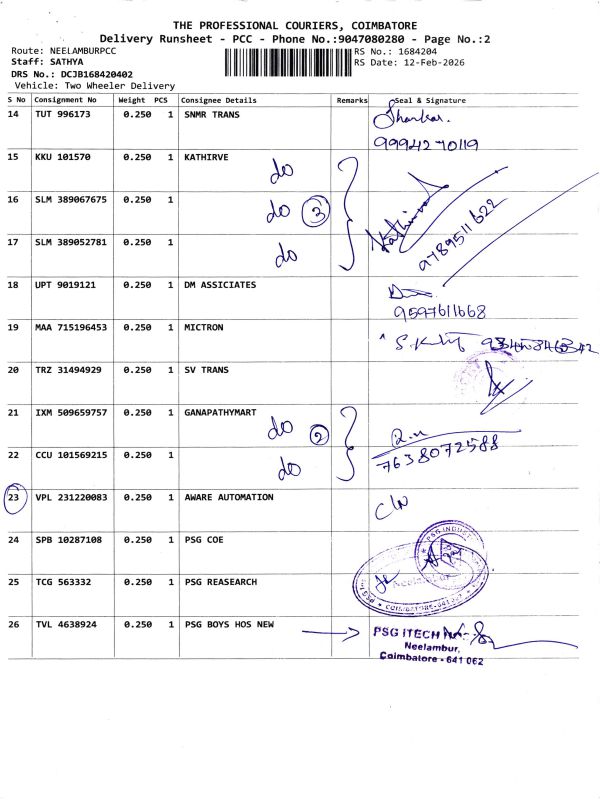 THE PROFESSIONAL COURIERS, COIMBATORE
Delivery Runsheet - PCC - Phone No.:9047080280 - Page No.:2
Route: NEELAMBURPCC
RS No.: 1684204
Staff: SATHYA
RS Date: 12-Feb-2026
DRS No.: DCJB168420402
Vehicle: Two Wheeler Delivery
S No Consignment No Weight PCS Consignee Details Remarks Seal & Signature
14 TUT 996173 0.250 1 SNMR TRANS
9994270119
15 KKU 101570 0.250 1 KATHIRVE do
16 SLM 389067675 0.250 1 do 3
9789511622
17 SLM 389052781 0.250 1 do
18 UPT 9019121 0.250 1 DM ASSICIATES
9597611668
19 MAA 715196453 0.250 1 MICTRON
20 TRZ 31494929 0.250 1 SV TRANS
21 IXM 509659757 0.250 1 GANAPATHYMART do 2
22 CCU 101569215 0.250 1 do 7638072588
23 VPL 231220083 0.250 1 AWARE AUTOMATION
24 SPB 10287108 0.250 1 PSG COE
25 TCG 563332 0.250 1 PSG REASEARCH
26 TVL 4638924 0.250 1 PSG BOYS HOS NEW
PSG ITECH
Neelambur,
Coimbatore - 641 062